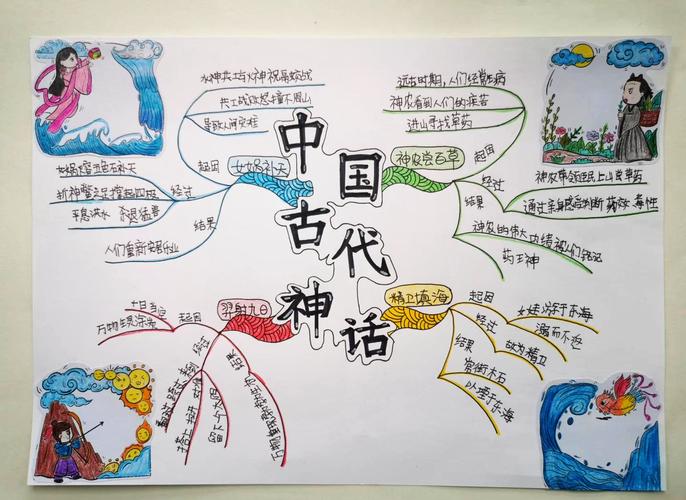 中国
古代
神话
水神共工与火神祝融交战
共工战败怒撞不周山
导致人间灾难
起因
女娲补天
五色石补天
折神鳖之足撑起四极
经过
平息洪水 杀退猛兽
结果
人们重新安居乐业
远古时期,人们经常生病
神农看到人们的疾苦
进山寻找草药
起因
神农尝百草
经过
神农带领臣民上山尝草药
通过亲身感受判断药效、毒性
结果
神农的伟大功绩被人们铭记
药王神
羿射九日
起因
十日当空
万物生灵涂炭
经过
结果
留下一个太阳
万物重现勃勃生机
精卫填海
起因
女娃游于东海
经过
溺而不返
故为精卫
结果
常衔木石
以堙于东海